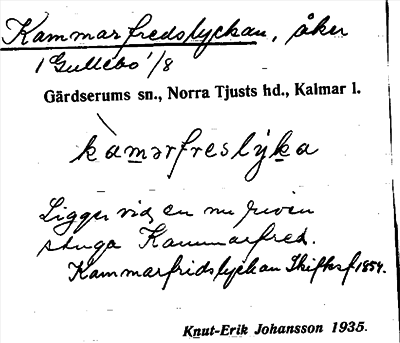 Kammarfredslyckan, åker
i Gullebo 1/8
Gärdserums sn., Norra Tjusts hd., Kalmar l.
kamərfreslýka
Ligger vid en nu riven
stuga Kammarfred.
Kammarfridslyckan Skifteskf 1854.
Knut-Erik Johansson 1935.